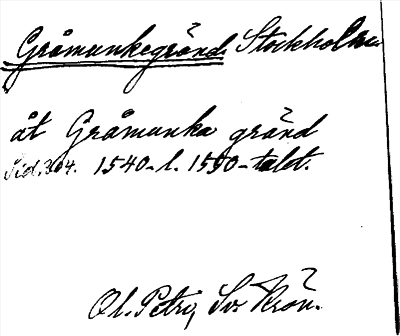 Gråmunkegränd, Stockholm.
åt Gråmunka gränd
Sid. 304. 1540-t. 1550-talet.
Ol. Petri, Sv. Krön.